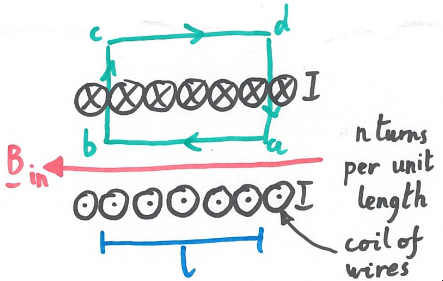 c
d
I
b
a
B in
n turns
per unit
length
I
coil of
wires
l